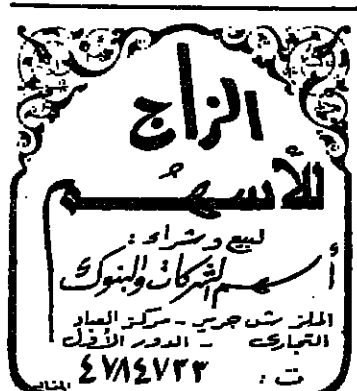 الزاج
للأسهم
لبيع وشراء:
أسهم الشركات والبنوك
الملز ش جرير - مركز العباد
التجاري - الدور الأول
ت: ٤٧٨٤٧٣٣